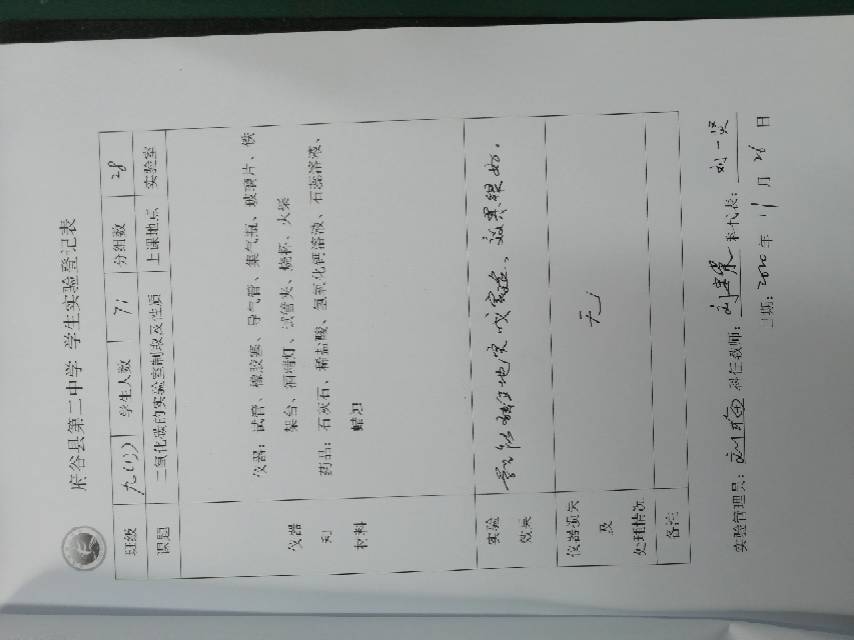 府谷县第二中学 学生实验登记表
班级 九(1) 学生人数 71 分组数 28
课题 二氧化碳的实验室制取及性质 上课地点 实验室
仪器
和
材料
仪器：试管、橡胶塞、导气管、集气瓶、玻璃片、铁
架台、酒精灯、试管夹、烧杯、火柴
药品：石灰石、稀盐酸、氢氧化钙溶液、石蕊溶液、
蜡烛
实验
效果
地完成实验，效果很好。
仪器损失
及
处理情况
无
备注
实验管理员： 科任教师： 科代表：刘一昊
日期：2020年11月28日